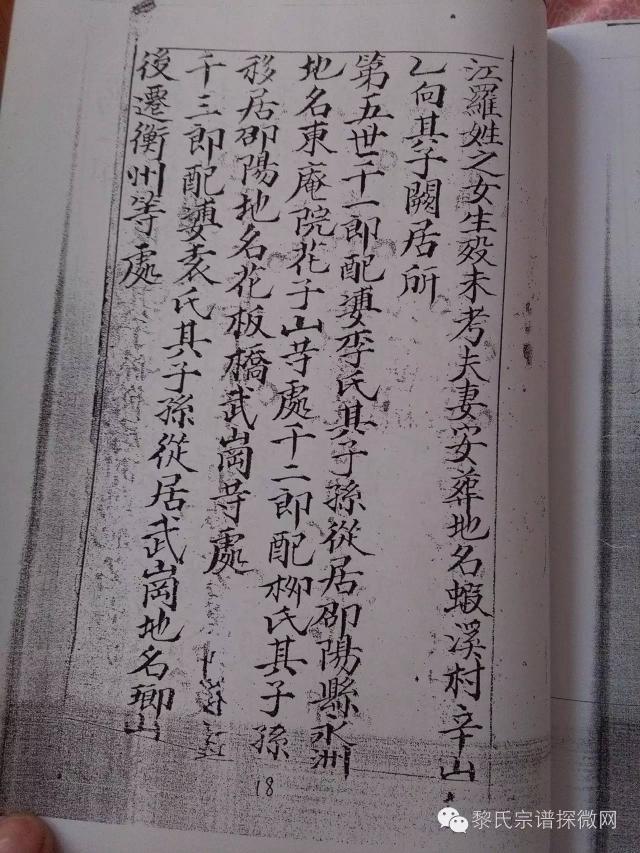 江羅姓之女生殁未考夫妻安葬地名蝦溪村辛山
乙向其子闕居所
第五世千一郎配婆李氏其子孫從居邵陽縣永洲
地名東庵院花子山等處千二郎配柳氏其子孫
移居邵陽地名花板橋武崗等處
千三郎配婆袁氏其子孫從居武崗地名瑯山
後遷衡州等處
18
黎氏宗谱探微网